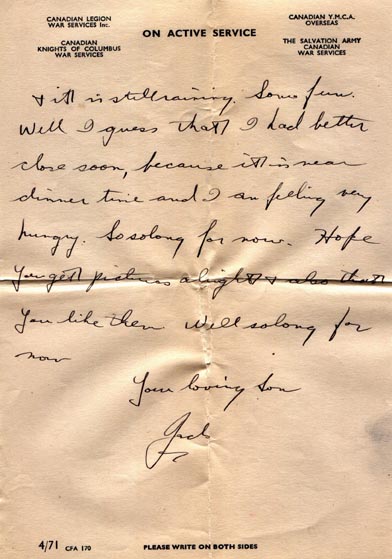 CANADIAN LEGION
WAR SERVICES Inc.
CANADIAN
KNIGHTS OF COLUMBUS
WAR SERVICES
ON ACTIVE SERVICE
CANADIAN Y.M.C.A.
OVERSEAS
THE SALVATION ARMY
CANADIAN
WAR SERVICES
& itt is still raining. Some fun.
Well I guess that I had better
close soon, because itt is near
dinner time and I am feeling very
hungry. So solong for now. Hope
you gett pictures alright & also that
you like them Well solong for
now
Your loving Son
Jack
4/71 CFA 170
PLEASE WRITE ON BOTH SIDES